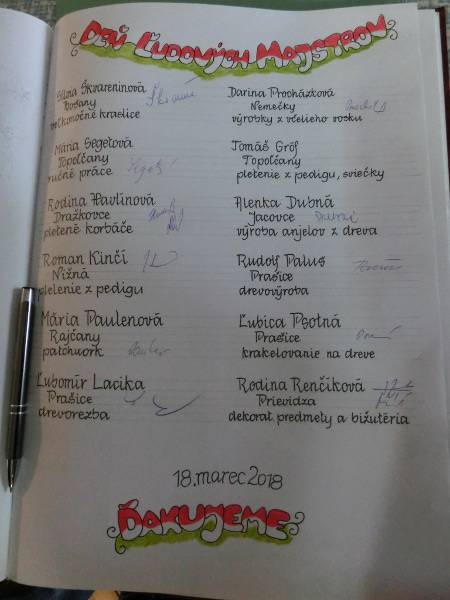 Deň Ľudových Majstrov
Škvareninová
Bošany
veľkonočné kraslice
Mária Segeťová
Topoľčany
ručné práce
Rodina Havlinová
Dražkovce
pletené korbáče
Roman Kinčí
Nižná
pletenie z pedigu
Mária Paulenová
Rajčany
patchwork
Ľubomír Lacika
Prašice
drevorezba
Darina Procházková
Nemečky
výrobky z včelieho vosku
Tomáš Gróf
Topoľčany
pletenie z pedigu, sviečky
Alenka Dubná
Jacovce
výroba anjelov z dreva
Rudolf Palus
Prašice
drevovýroba
Ľubica Psotná
Prašice
krakelovanie na dreve
Rodina Renčíková
Prievidza
dekorat. predmety a bižutéria
18. marec 2018
Ďakujeme